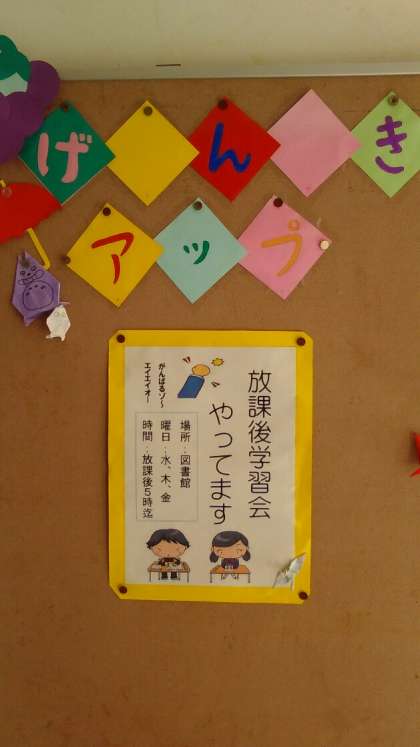 げんき
アップ
放課後学習会
やってます
場所：図書館
曜日：水、木、金
時間：放課後5時迄
がんばるゾ〜
エイエイオー